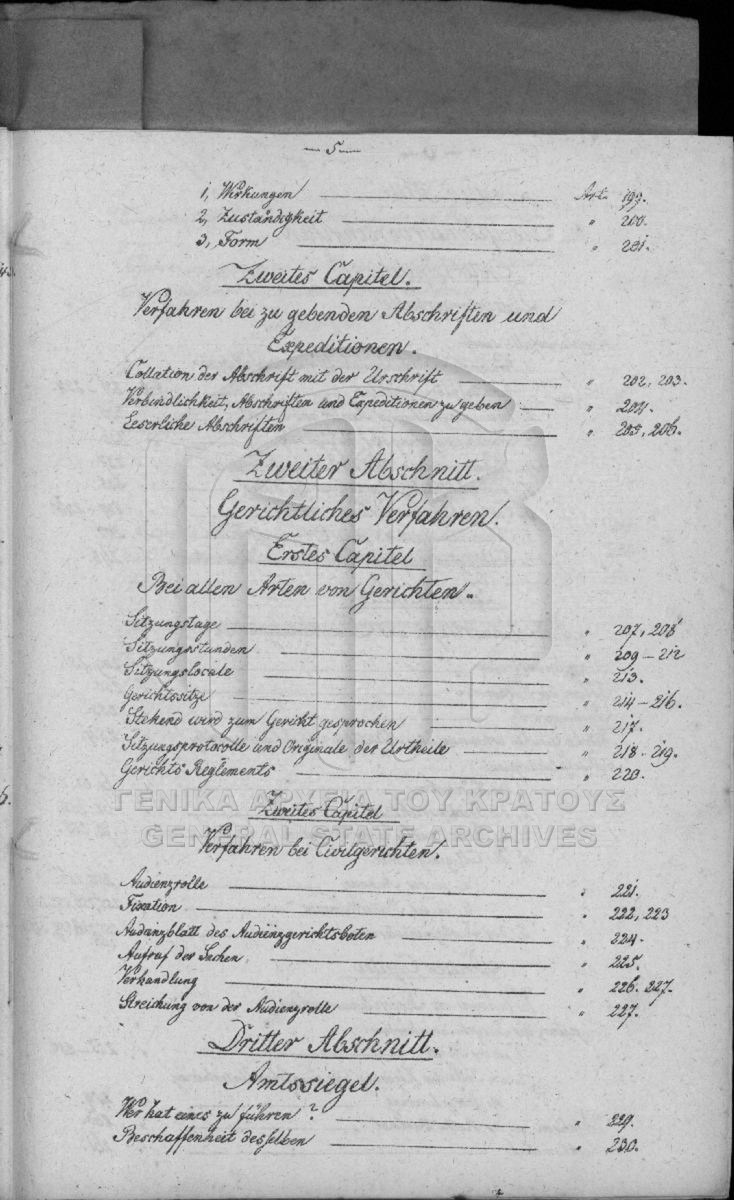 — 5 —
1, Wirkungen Art. 199.
2, Zuständigkeit " 200.
3, Form " 201.
Zweites Capitel.
Verfahren bei zu gebenden Abschriften und
Expeditionen.
Collation der Abschrift mit der Urschrift " 202, 203.
Verbindlichkeit, Abschriften und Expeditionen zu geben " 204.
Leserliche Abschriften " 205, 206.
Zweiter Abschnitt.
Gerichtliches Verfahren.
Erstes Capitel
Bei allen Arten von Gerichten.
Sitzungstage " 207, 208
Sitzungsstunden " 209 – 212
Sitzungslocale " 213.
Gerichtssitze " 214 – 216.
Stehend wird zum Gericht gesprochen " 217.
Sitzungsprotocolle und Originale der Urtheile " 218 - 219.
Gerichts Reglements " 220.
ΓΕΝΙΚΑ ΑΡΧΕΙΑ ΤΟΥ ΚΡΑΤΟΥΣ
Zweites Capitel
GENERAL STATE ARCHIVES
Verfahren bei Civilgerichten.
Audienzrolle " 221.
Fixation " 222, 223
des Audienzgerichtsboten " 224.
Aufruf der Sachen " 225.
Verhandlung " 226. 227.
Streichung von der Audienzrolle " 227.
Dritter Abschnitt.
Amtssiegel.
Wer hat eines zu führen? " 229.
Beschaffenheit desselben " 230.